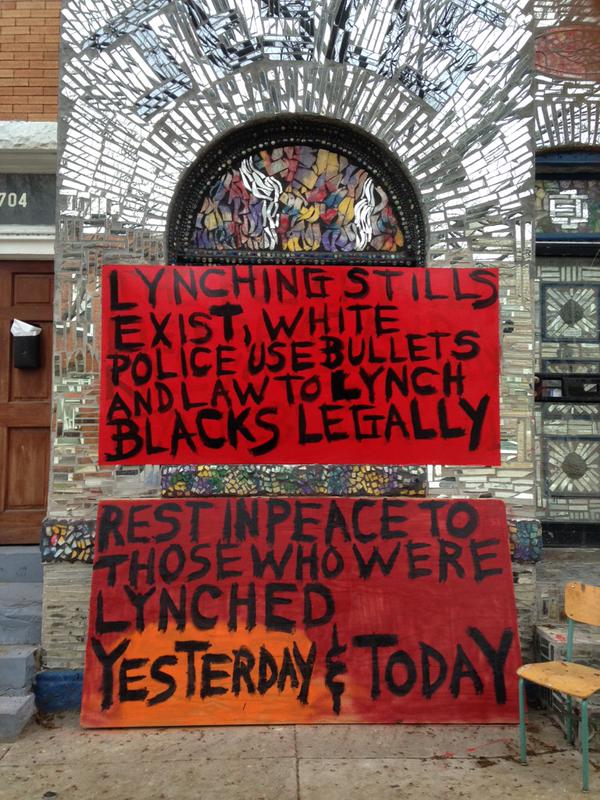 704
LYNCHING STILLS
EXIST, WHITE
POLICE USE BULLETS
AND LAW TO LYNCH
BLACKS LEGALLY
REST IN PEACE TO
THOSE WHO WERE
LYNCHED
YESTERDAY & TODAY